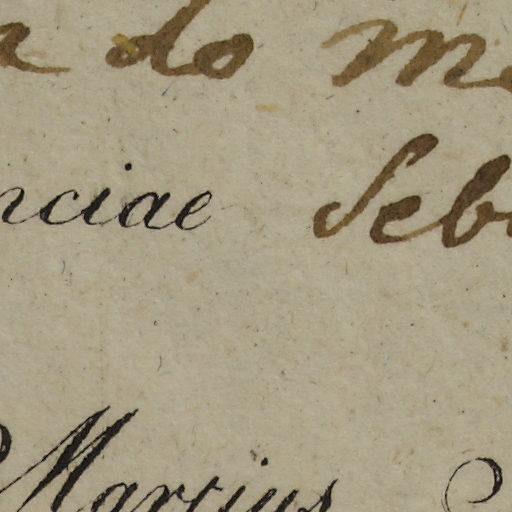 a do me
nciae Seb
Martius